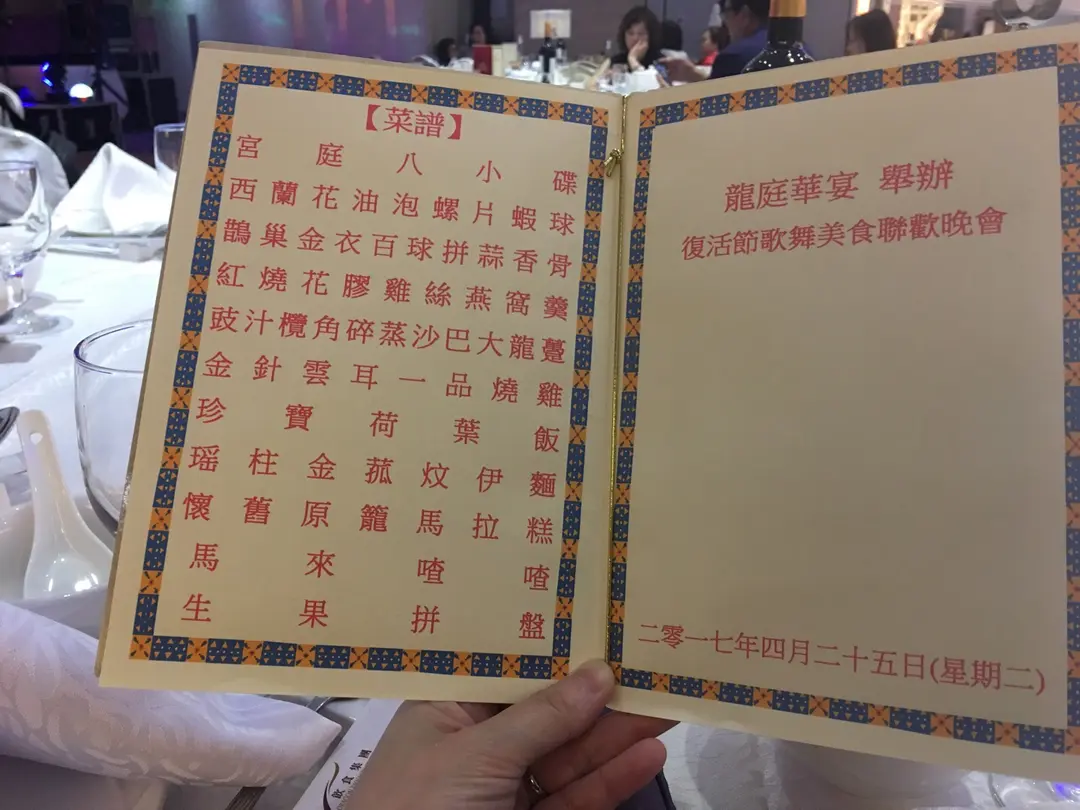 【菜譜】
宮庭八小碟
西蘭花油泡螺片蝦球
鵲巢金衣百球拼蒜香骨
紅燒花膠雞絲燕窩羹
豉汁欖角碎蒸沙巴大龍躉
金針雲耳一品燒雞
珍寶荷葉飯
瑶柱金菰炆伊麵
懷舊原籠馬拉糕
馬來喳喳
生果拼盤
龍庭華宴 舉辦
復活節歌舞美食聯歡晚會
二零一七年四月二十五日(星期二)
飲食集團